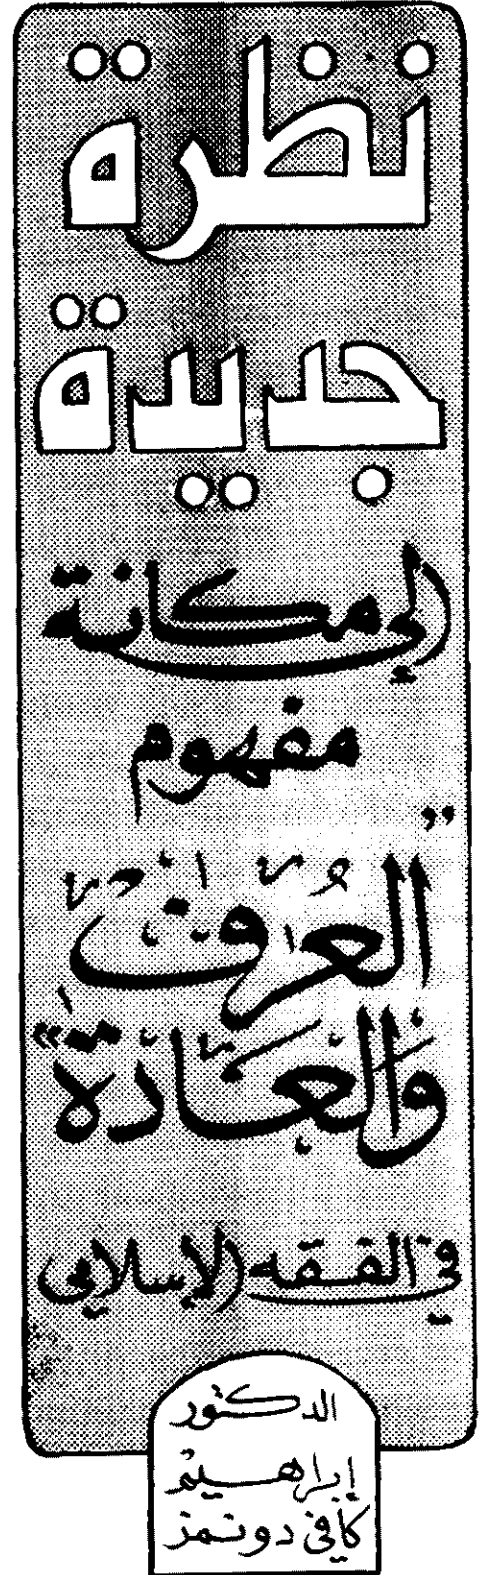 نظرة
جديدة
إلى مكانة
مفهوم
"العُرف
والعَادة"
في الفقه الإسلامي
الدكتور
إبراهيم
كافي دونمز